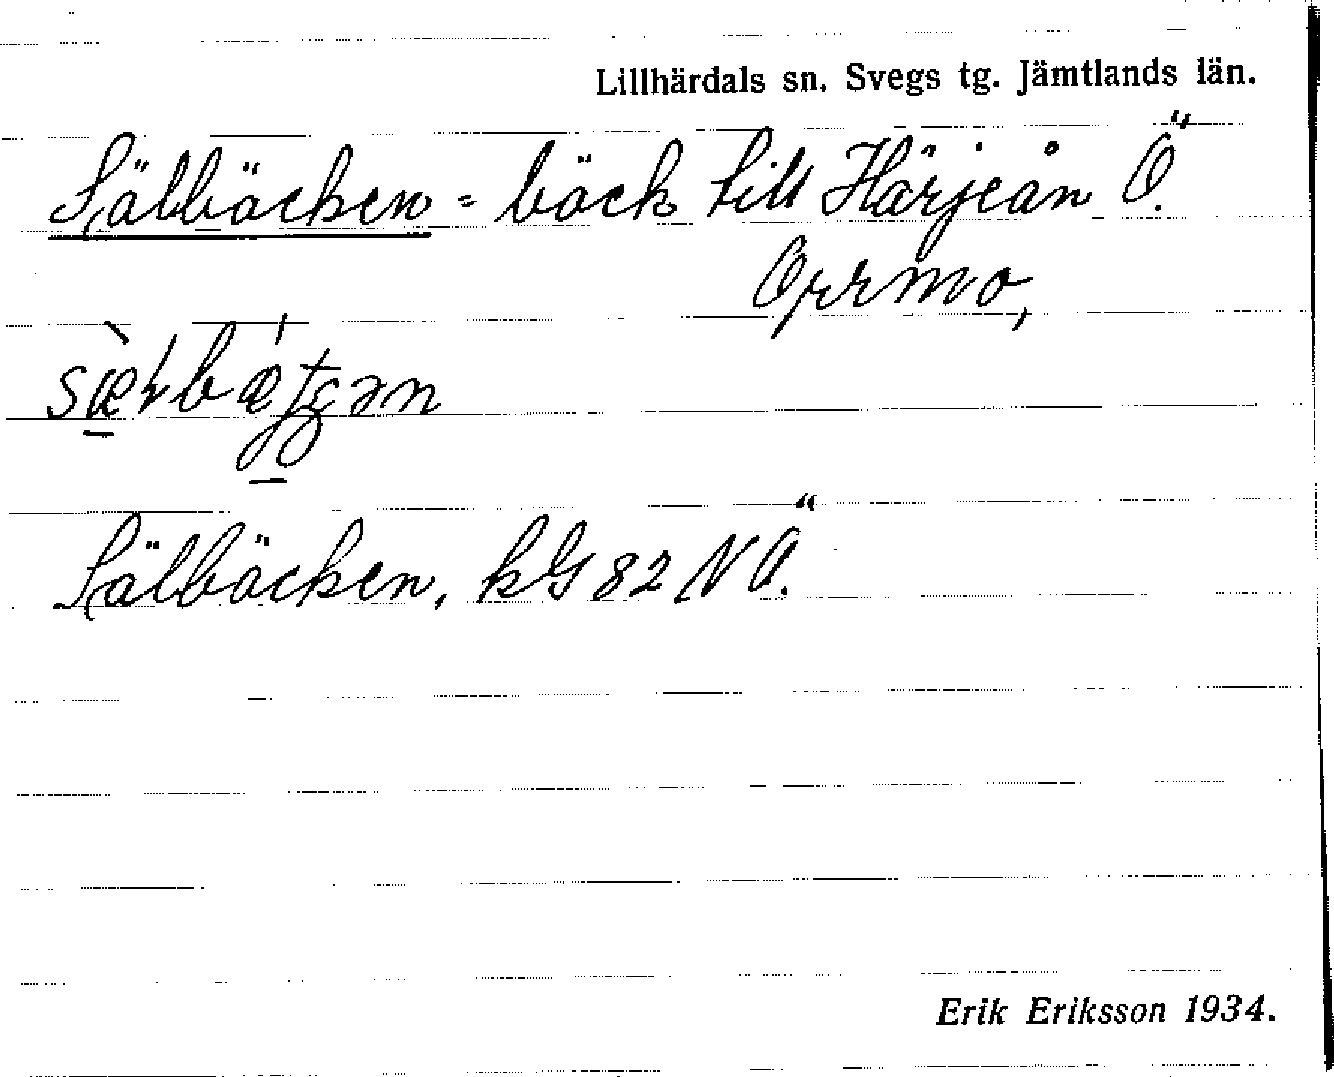 Lillhärdals sn. Svegs tg. Jämtlands län.
Sälbäcken = bäck till Härjeån Ö.
Orrmo,
Sälbäcken, kG 82 NÖ.
Erik Eriksson 1934.